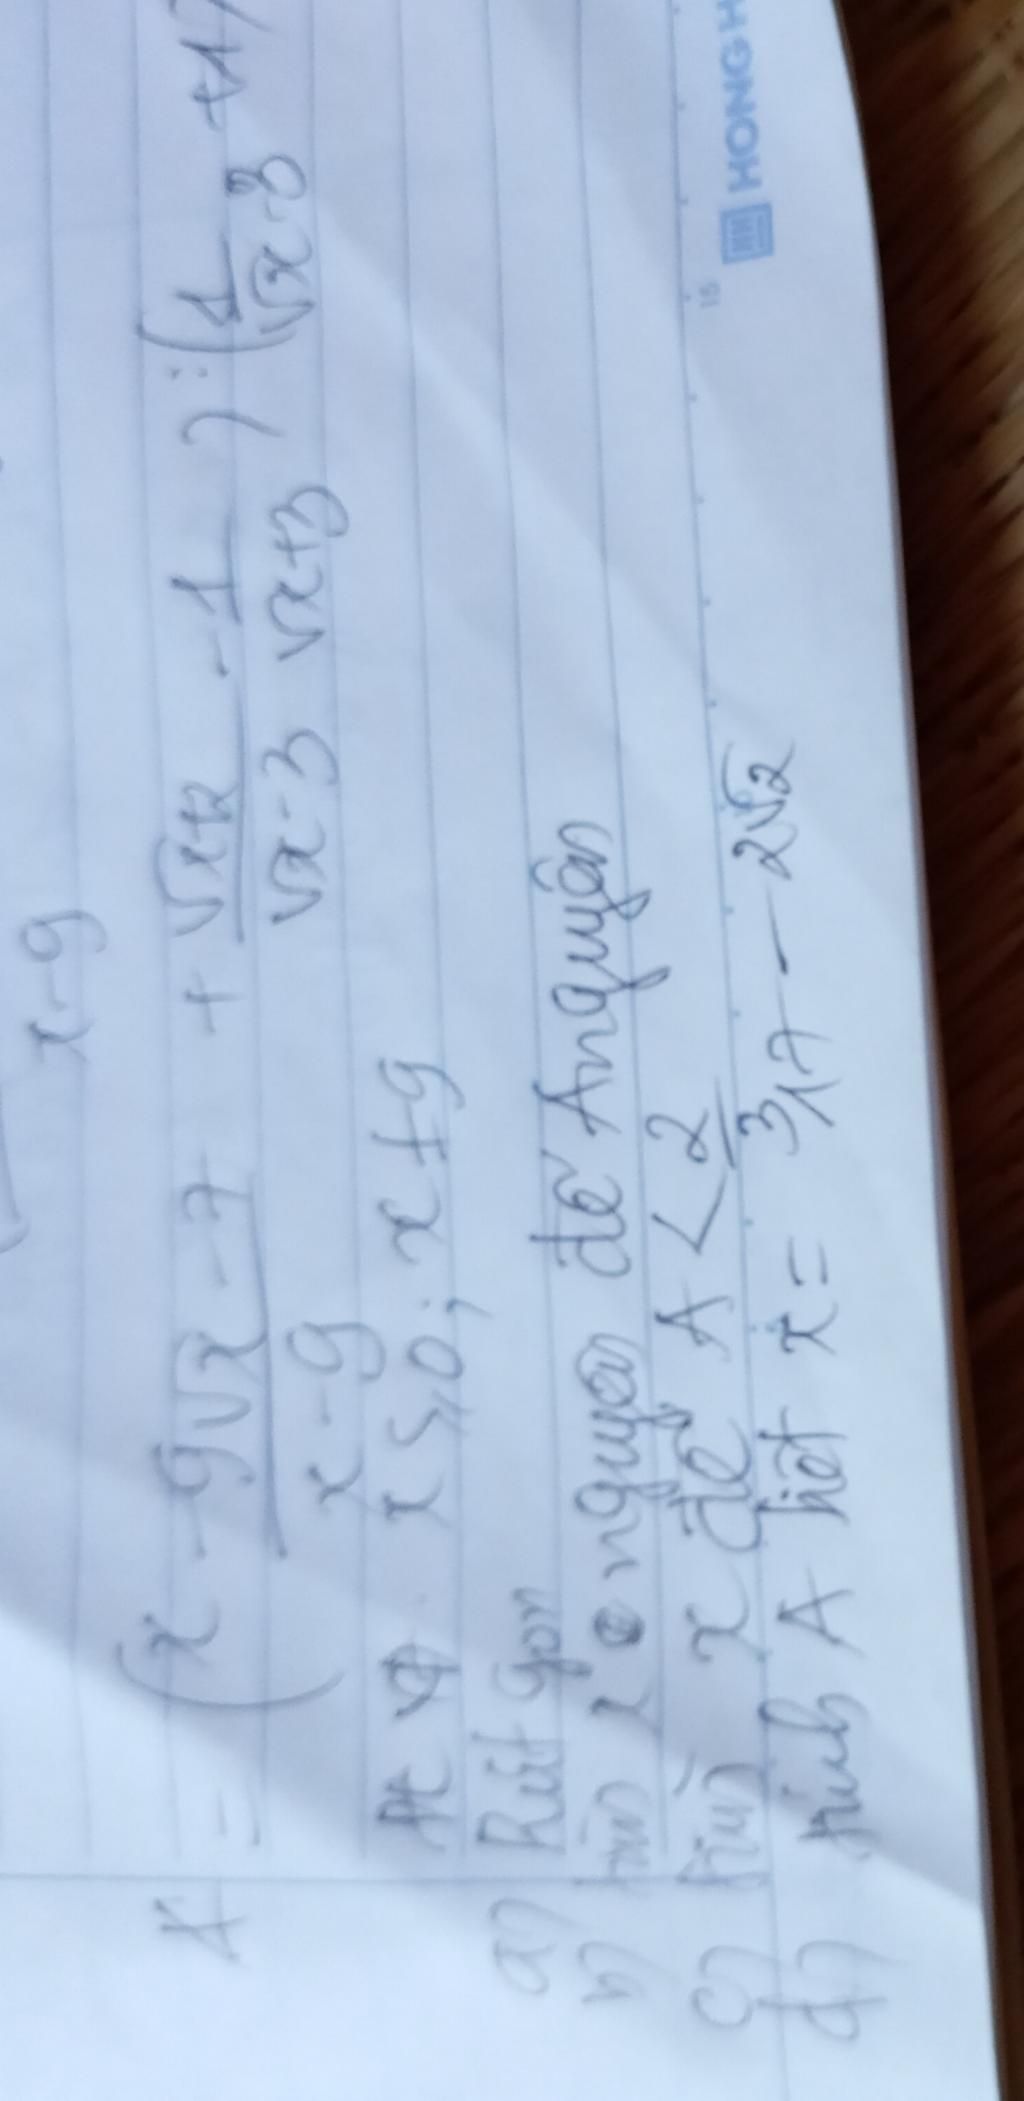 x-9
A = (x - 9√x - 7 / x - 9 + √x+2 / √x - 3 - 1 / √x+3) : (1 / √x-3 + 1)
x ≥ 0; x ≠ 9
a) Rút gọn
b) tìm x nguyên để A nguyên
c) tìm x để A < 2/3
d) tính A biết x = 17 - 2√2
15 HH HONG H